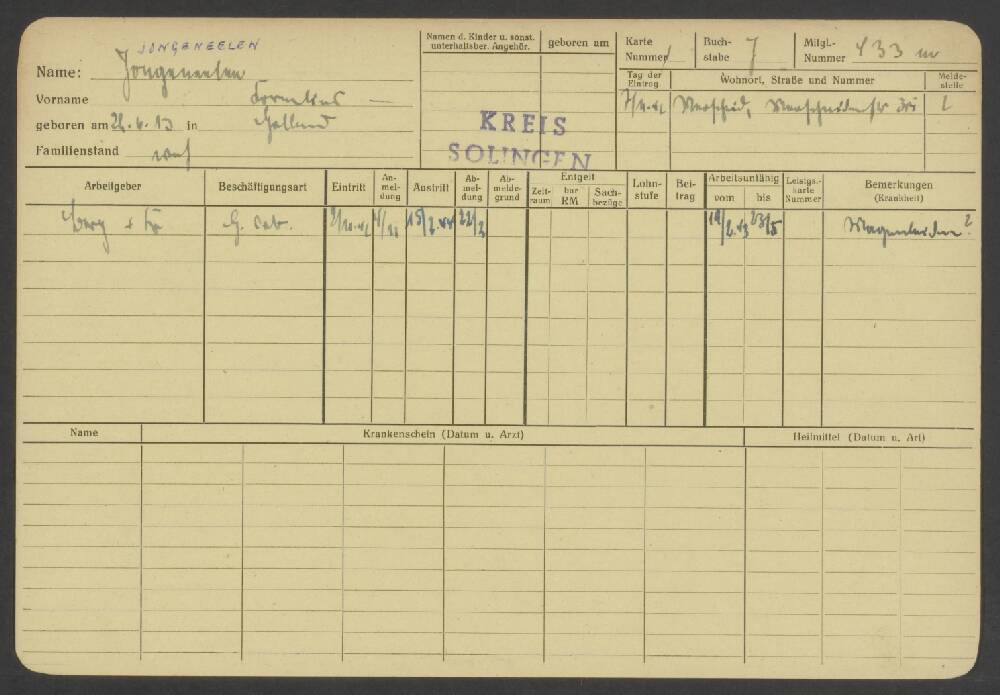 JONGENEELEN
Name: Jongeneelen
Vorname Cornelius —
geboren am 26.6.13 in Holland
Familienstand
Namen d. Kinder u. sonst. unterhaltsber. Angehör.
geboren am
KREIS
SOLINGEN
Karte Nummer
Buchstabe J
Mitgl.-Nummer 433
Tag der Eintrag
Wohnort, Straße und Nummer
Meldestelle
Merscheid, Merscheiderstr
Arbeitgeber
Beschäftigungsart
Eintritt
An-mel-dung
Austritt
Ab-mel-dung
Ab-melde-grund
Entgelt
Zeit-raum
bar RM
Sach-bezüge
Lohn-stufe
Bei-trag
Arbeitsunfähig
vom
bis
Leistgs.-karte Nummer
Bemerkungen (Krankheit)
15/2.44 22/2 Magenleiden?
Name
Krankenschein (Datum u. Arzt)
Heilmittel (Datum u. Art)